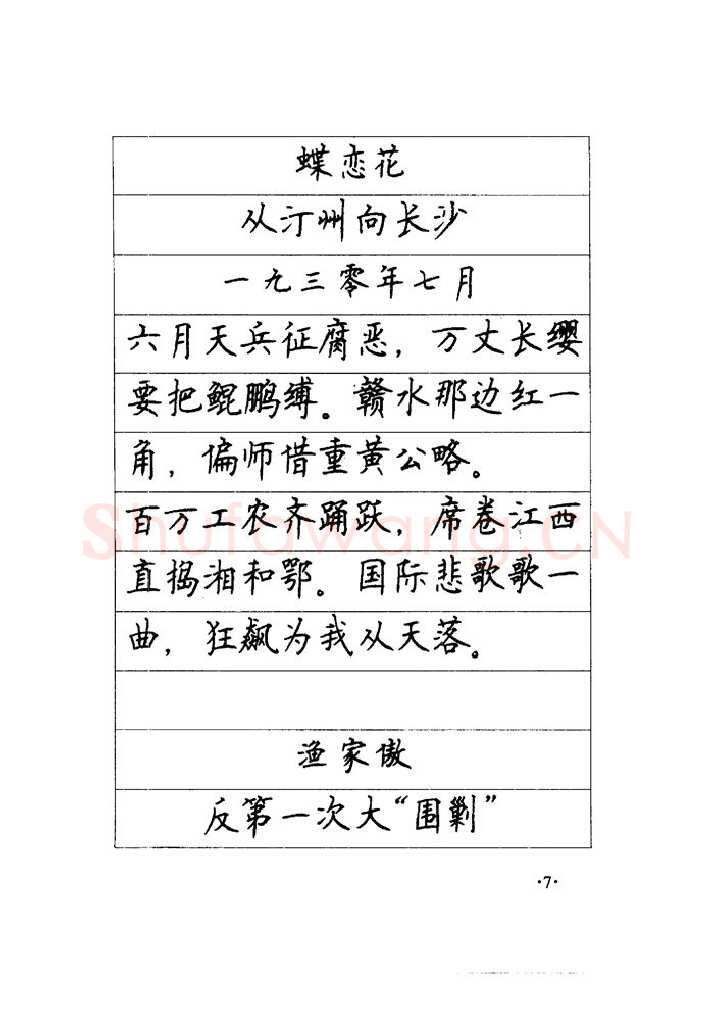 蝶恋花
从汀州向长沙
一九三零年七月
六月天兵征腐恶，万丈长缨
要把鲲鹏缚。赣水那边红一
角，偏师借重黄公略。
百万工农齐踊跃，席卷江西
直捣湘和鄂。国际悲歌歌一
曲，狂飙为我从天落。
渔家傲
反第一次大“围剿”
·7·
Shufawang.CN